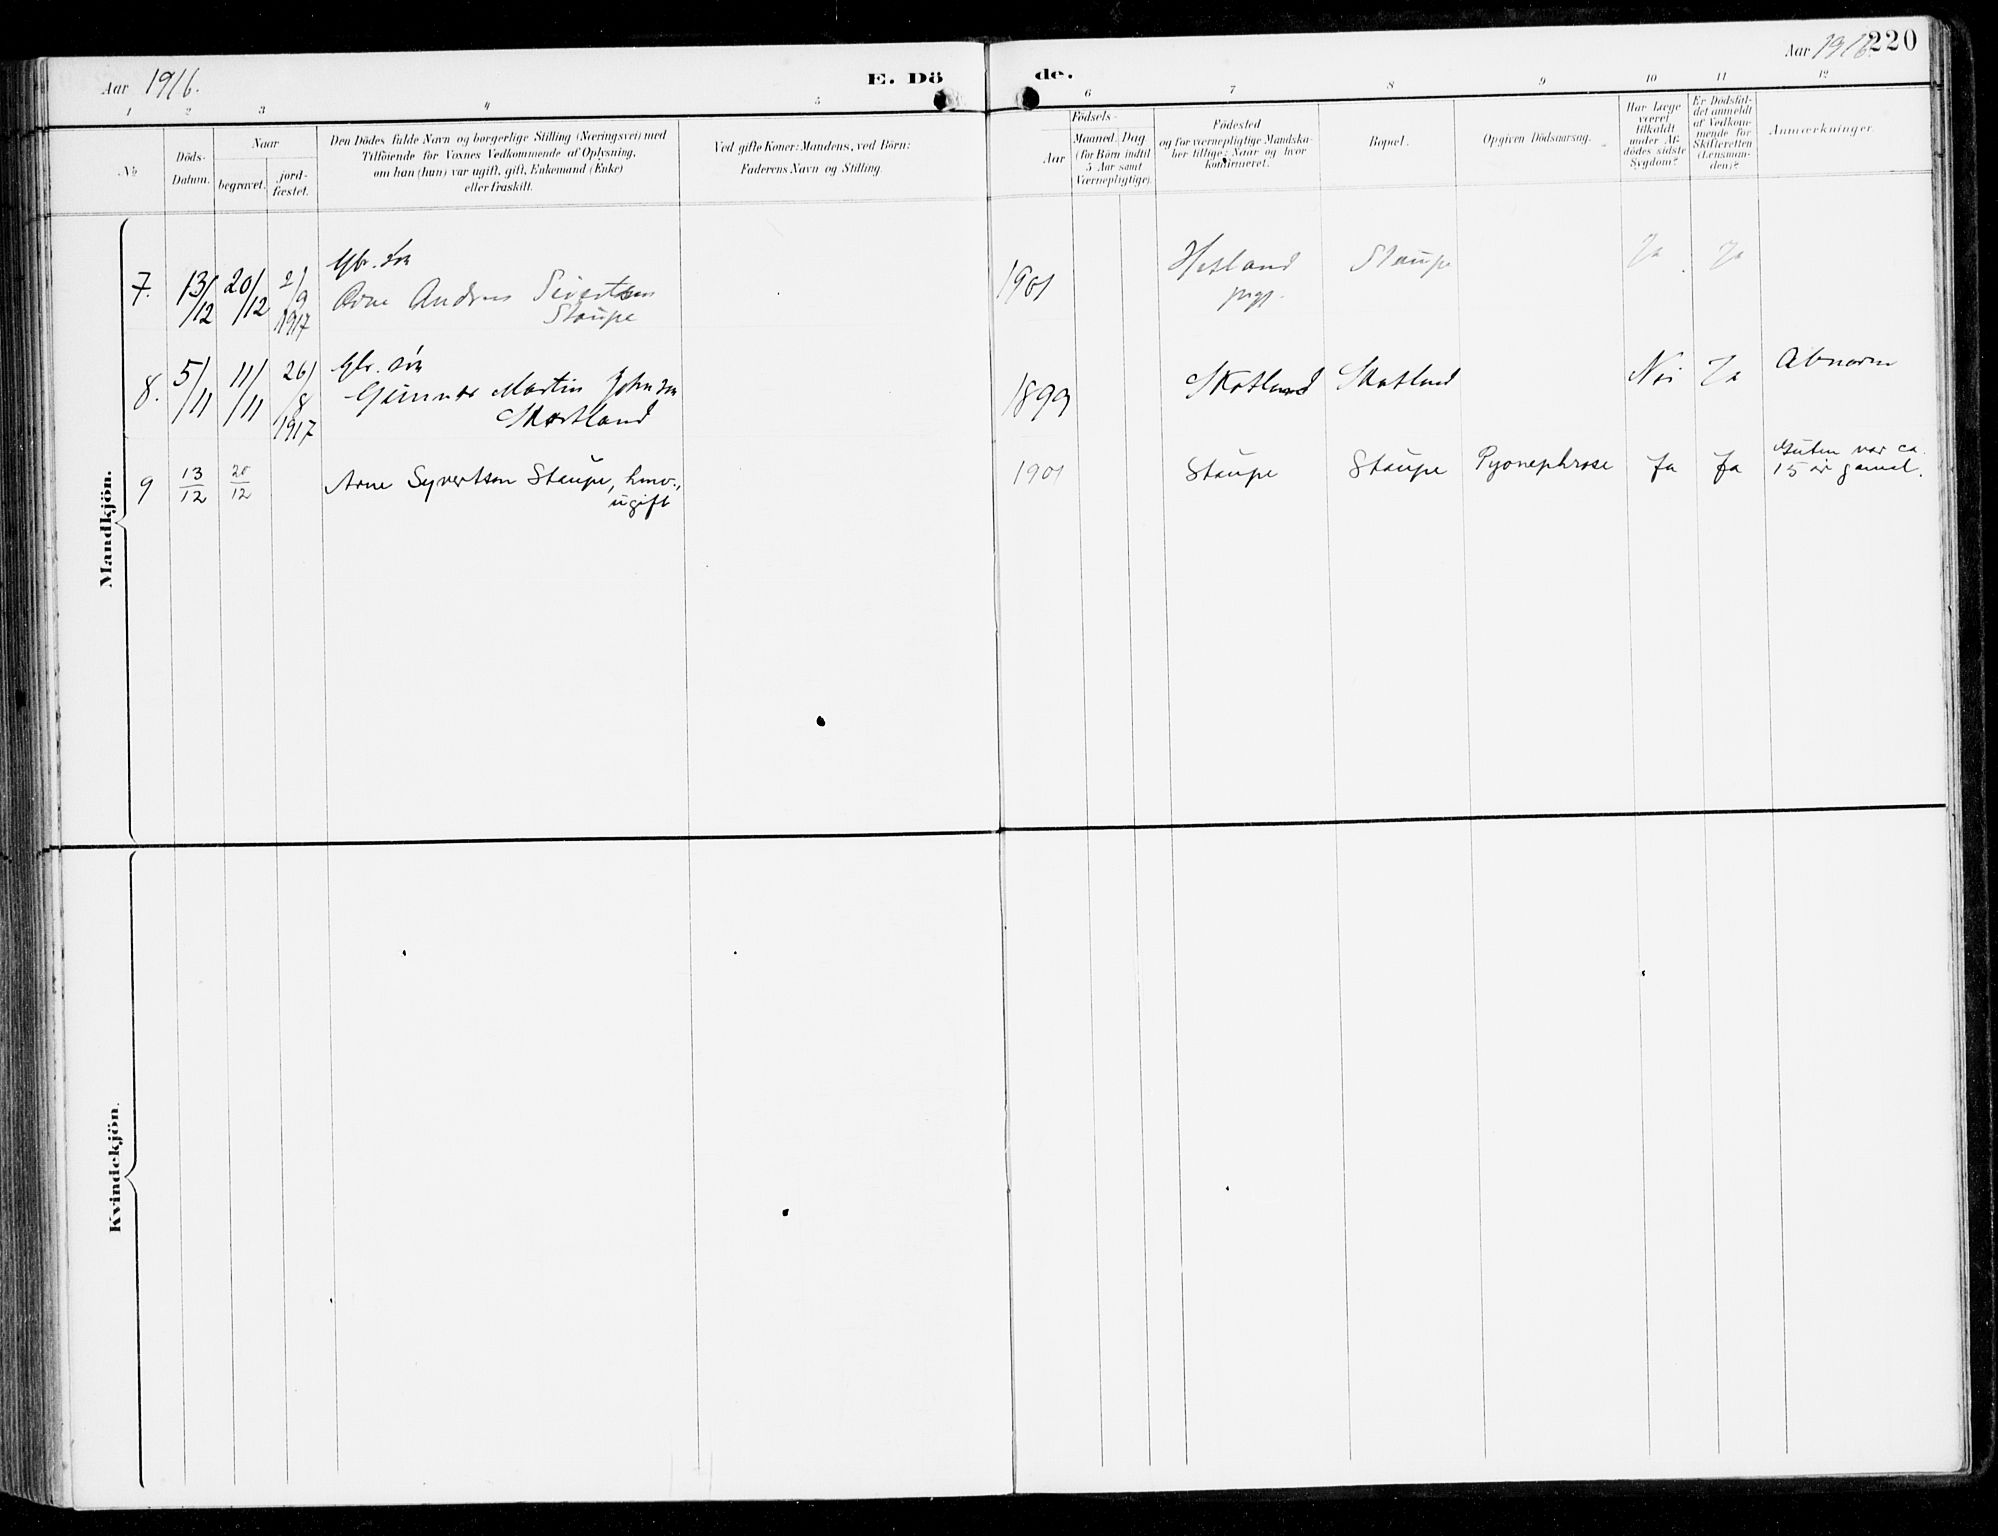 Aar 1916.
E. Dö
de.
Aar 1916.
220
1 2 3 4 5
6 7 8 9 10 11 12
№
Döds-
Datum.
Naar
begravet.
jord-
fæstet.
Den Dödes fulde Navn og borgerlige Stilling (Næringsvei) med
Tilföiende for Voxnes Vedkommende af Oplysning,
om han (hun) var ugift, gift, Enkemand (Enke)
eller fraskilt.
Ved gifte Koner: Mandens, ved Börn:
Faderens Navn og Stilling.
Födsels-
Aar
Maaned. Dag
(for Börn indtil
5 Aar samt
Værnepligtige).
Födested
og for værnepligtige Mandska-
ber tillige: Naar og hvor
konfirmeret.
Bopæl.
Opgiven Dödsaarsag.
Har Læge
været
tilkaldt
under Af-
dödes sidste
Sygdom?
Er Dödsfal-
det anmeldt
af Vedkom-
mende for
Skifteretten
(Lensman-
den)?
Anmærkninger.
Mandkjön.
7. 13/12 20/12 2/9 1917
Gbr. søn
Arne Andreas Sivertsen
Staupe
1901
Hetland
prgj.
Staupe
Ja
Ja
8. 5/11 11/11 26/8 1917
Gbr. søn
Gunnar Martin Johnsen
Skartland
1899
Skatland
Skatland
Nei
Ja
Abnorm
9 13/12 20/12
Arne Syvertson Staupe, hmv.,
ugift
1901
Staupe
Staupe
Pyonephrose
Ja
Ja
Guten var ca.
15 år gamal.
Kvindekjön.